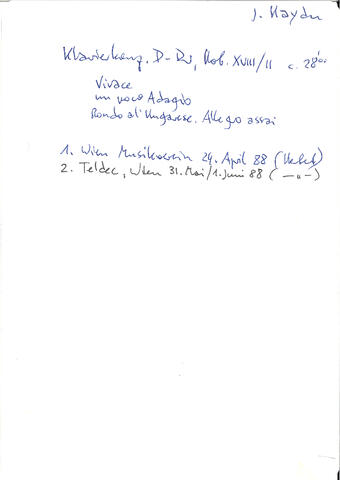 J. Haydn
Klavierkonz. D-Dur, Hob. XVIII/11 c. 28'
Vivace
un poco Adagio
Rondo all'Ungarese. Allegro assai
1. Wien Musikverein 24. April 88
2. Teldec, Wien 31. Mai/1. Juni 88 ( — " — )